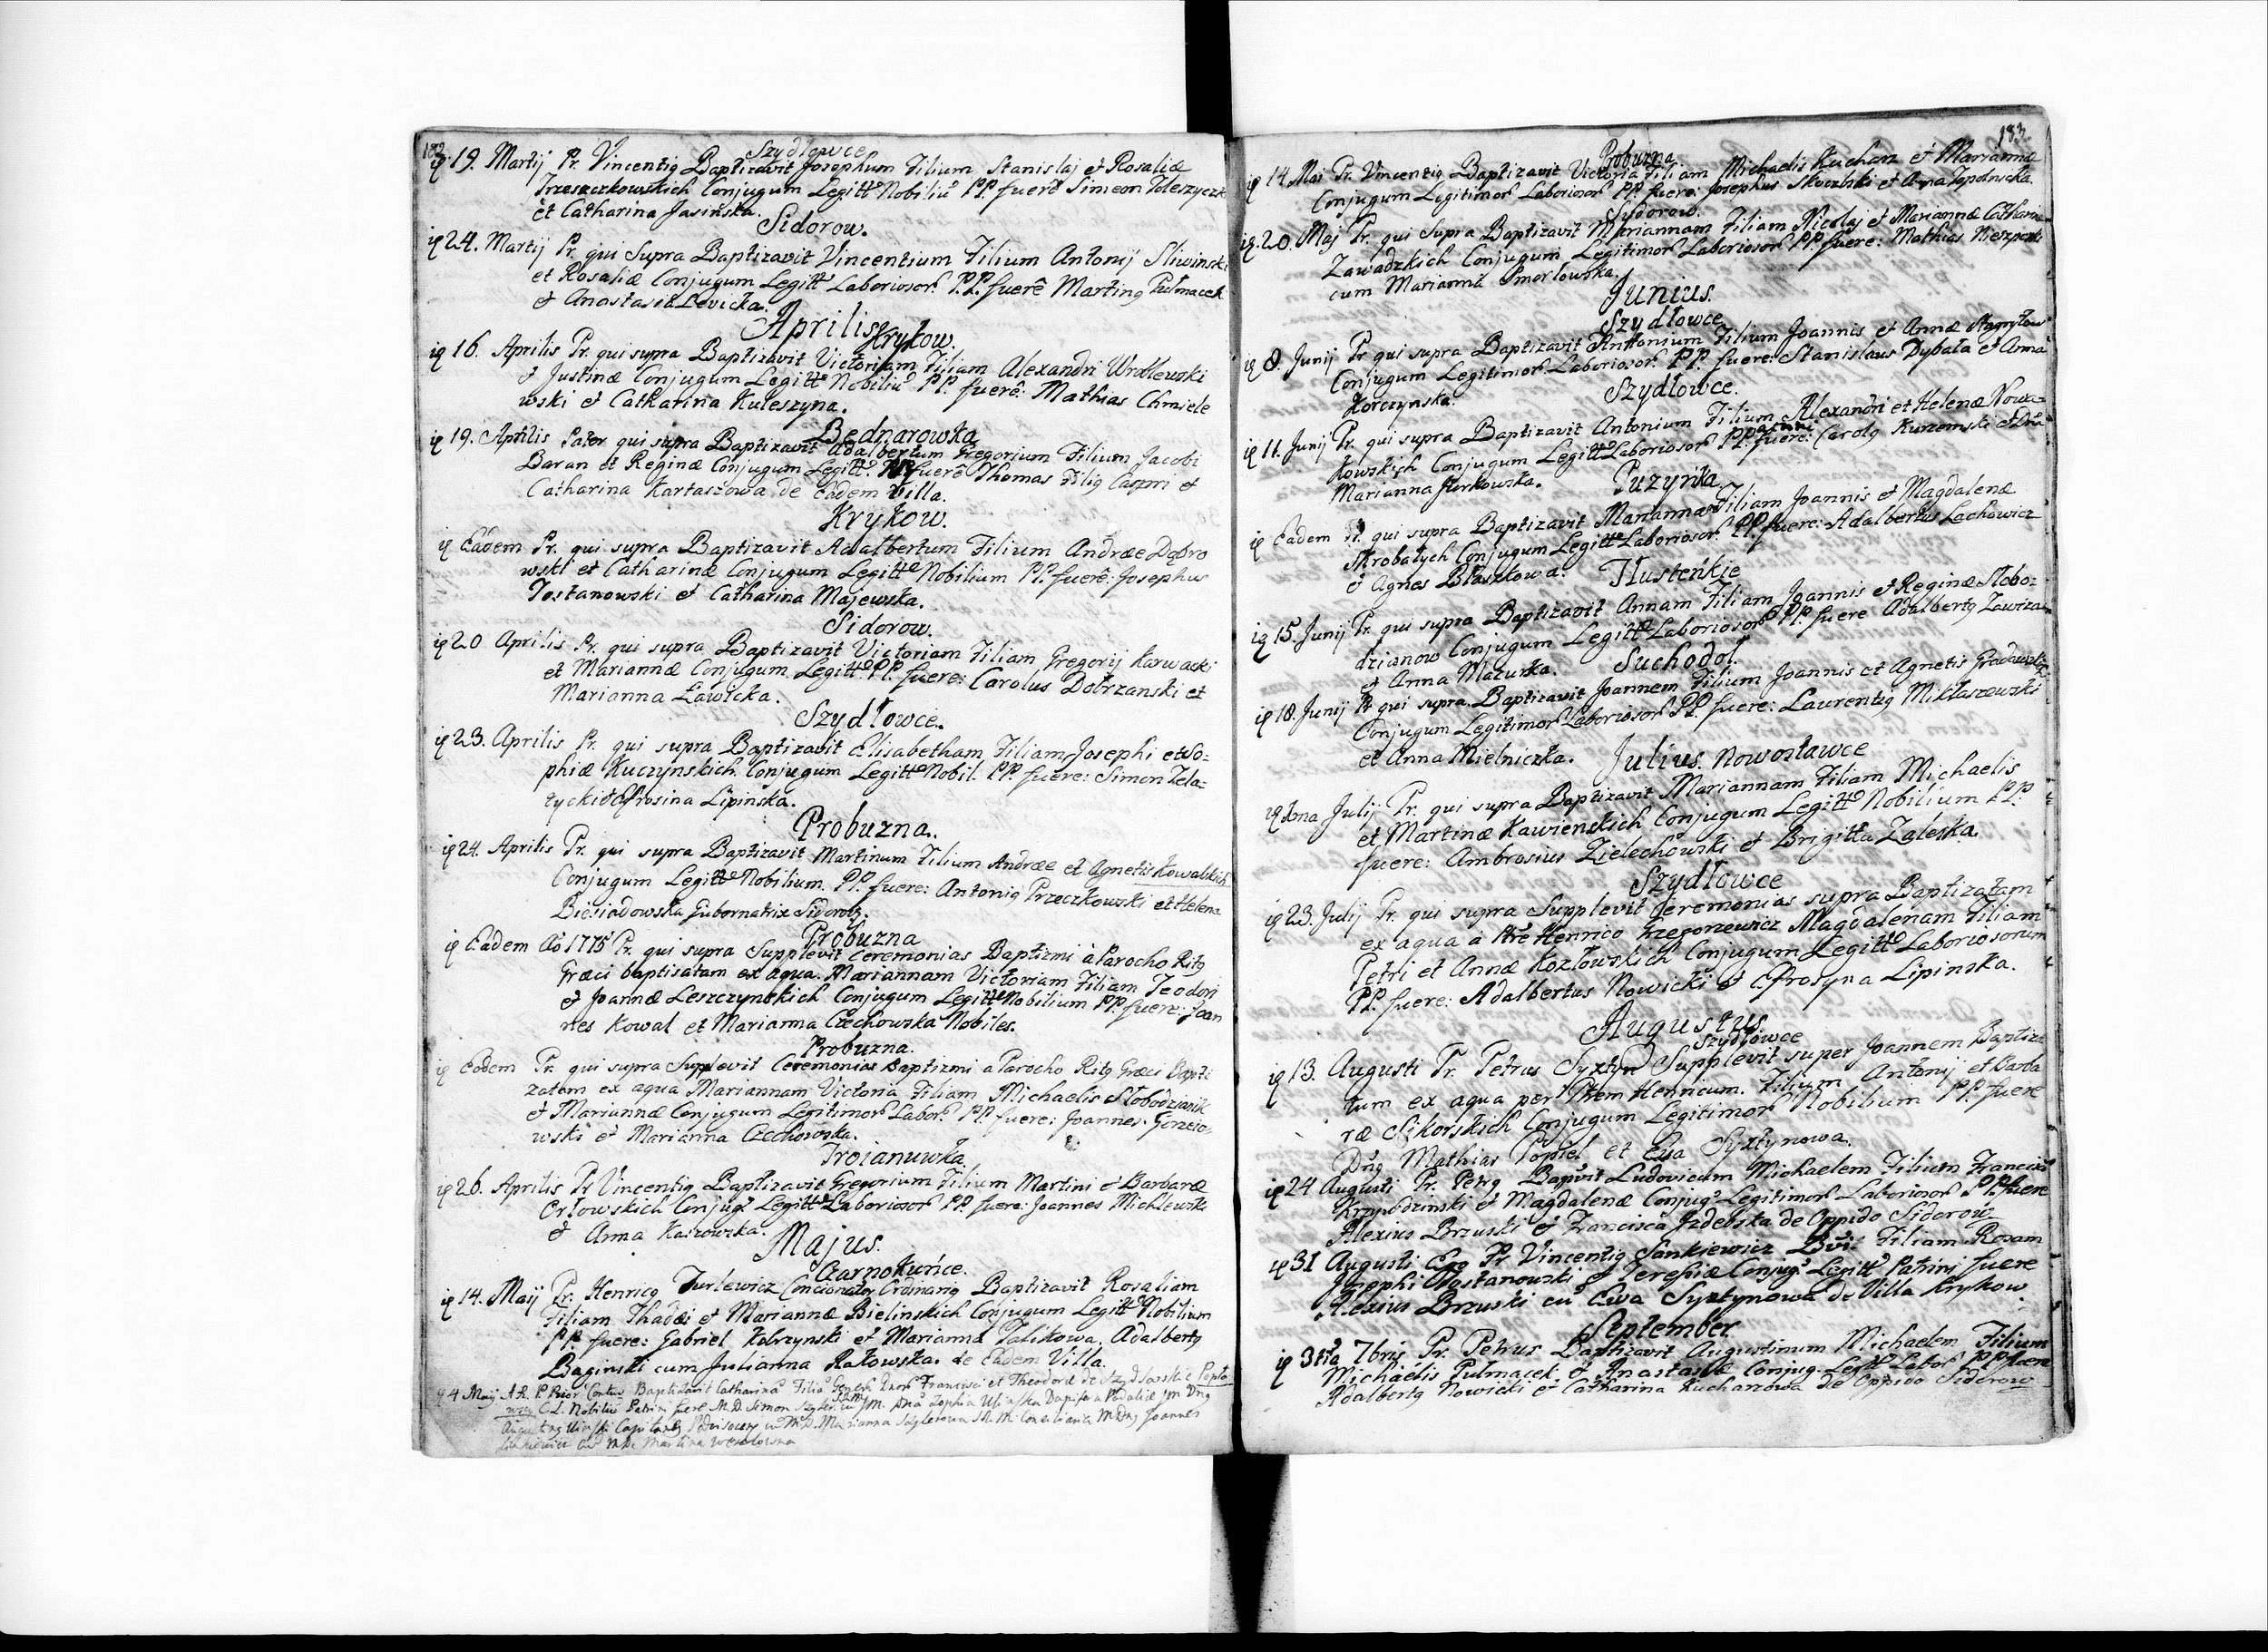 182
Szydłowce
19. Martij Pr. Vincentig Baptizavit Josephum Filium Stanislaj et Rosaliæ
Conjugum Legittô Nobiliũ PP. fuerê Simeon
et Catharina Jasinska.
Sidorow.
24. Martij Pr. qui Supra Baptizavit Vincentium Filium Antonij Sliwinski
et Rosaliæ Conjugum Legittô Laborioso͠r. P.P. fuerê Marting Pułmacek
et Anastasia Levicka.
Aprilis Krykow.
16. Aprilis Pr. qui supra Baptizavit Victoriam Filiam Alexandri Wroblewski
et Justinæ Conjugum Legittô Nobiliũ PP. fuerê: Mathias Chmiele
wski et Catharina Kuleszyna.
Bednarowka
19. Aprilis Pater qui supra Baptizavit Adalbertum Gregorium Filium Jacobi
Baran et Reginæ Conjugum Legittô. PP. fuerê Thomas Filig Caspri et
Catharina Kartaszowa de Eadem Villa.
Krykow.
Eadem Pr. qui supra Baptizavit Adalbertum Filium Andræe Dąbro
wski et Catharinæ Conjugum Legittô Nobilium PP. fuerê: Josephus
Tostanowski et Catharina Majewska.
Sidorow.
20 Aprilis Pr. qui supra Baptizavit Victoriam Filiam Gregorij Karwacki
et Mariannæ Conjugum Legittô PP. fuere: Carolus Dobrzanski et
Marianna Ławicka.
Szydłowce.
23. Aprilis Pr. qui supra Baptizavit Elisabetham Filiam Josephi et So-
phiæ Kuczynskich Conjugum Legittô Nobil. PP. fuere: Simon Zela-
zycki et Efrosina Lipinska.
Probuzna.
24. Aprilis Pr. qui supra Baptizavit Martinum Filium Andræe et Agnetis Kowalskich
Conjugum Legittô Nobilium. PP. fuere: Antonig Przeczkowski et Helena
Biesiadowska Gubernatrix
Probuzna
Eadem Aô 1775 Pr. qui supra Supplevit Ceremonias Baptizmi à Parocho Ritg
Græci baptisatam ex aqua. Mariannam Victoriam Filiam Teodori
et Joannæ Leszczynskich Conjugum Legittô Nobilium PP. fuere: Joan
nes Kowal et Marianna Czechowska Nobiles.
Probuzna.
Eadem Pr. qui supra Supplevit Ceremonias Baptizmi a Parocho Ritg Græci Bapti
zatam ex aqua Mariannam Victoria Filiam Michaelis Słobodzianik
et Mariannæ Conjugum Legitimo͠r Labo͠r. PP. fuere: Joannes
wski et Marianna Czechowska.
Troianuwka
26. Aprilis Pr Vincentig Baptizavit Gregorium Filium Martini et Barbaræ
Orłowskich Conjug͠ Legittô Laborioso͠r PP. fuere: Joannes Michlewski
et Anna
Majus.
Czarnokuńce.
14. Maij Pr. Henricg Turlewicz Concionator Ordinarig Baptizavit Rosaliam
Filiam Thadæi et Mariannæ Bielinskich Conjugum Legittô Nobilium
PP. fuere: Gabriel Kobrzynski et Marianna Falikowa. Adalbertg
Baginski cum Julianna Rakowska. de Eadem Villa.
4 Maij A. R. P. Prior Baptizavit Catharinã Filiã Francisci et Theodoræ de
C. L. Nobiliũ Patrini fuere M. D. Simon
M. D. Marianna Joannes
Martina
183.
Probuzna
14 Mai Pr. Vincentig Baptizavit Victoria Filiam Michaelis Kucharz et Mariannæ
Conjugum Legitimo͠r Laborioso͠r PP. fuere: Josephus et Anna
Sydorow.
20 Maj Pr. qui Supra Baptizavit Mariannam Filiam Nicolaj et Mariannæ Catharinæ
Zawadzkich Conjugum Legitimo͠r Laborioso͠r PP. fuere: Mathias
cum Marianna Smorłowska.
Junius.
Szydłowce
8. Junij Pr qui supra Baptizavit Antonium Filium Joannis et Annæ
Conjugum Legitimo͠r Laborioso͠r. PP. fuere: Stanislaus Dybała et Anna
Korczynska.
Szydłowce.
11. Junij Pr. qui supra Baptizavit Antonium Filium Alexandri et Helenæ Nowa-
kowskich Conjugum Legittô Laborioso͠r PP. fuere: Carolg Kurzemski et
Marianna Jurkowska.
Puzynka
Eadem Pr. qui supra Baptizavit Mariannam Filiam Joannis et Magdalenæ
Skrobatych Conjugum Legittô Laborioso͠r. PP. fuere: Adalbertus Lachowicz
et Agnes Błaszkowa.
Tłusteńkie
15. Junij Pr. qui supra Baptizavit Annam Filiam Joannis et Reginæ Słobo-
dzianow Conjugum Legittô Laborioso͠r PP. fuere Adalbertg
et Anna Mazurka.
Suchodoł.
18. Junij Pr qui supra. Baptizavit Joannem Filium Joannis et Agnetis
Conjugum Legitimo͠r Laborioso͠r PP. fuere: Laurentig Mikłaszewski
et Anna Mielniczka.
Julius. Nowostawce
Julij Pr. qui supra Baptizavit Mariannam Filiam Michaelis
et Martinæ Kawienskich Conjugum Legittô Nobilium PP.
fuere: Ambrosius Zielechowski et Brigitta Zaleska.
Szydłowce
23. Julij Pr. qui supra Supplevit Ceremonias supra Baptizatam
ex aqua à Ptre Henrico Grzegorzewicz Magdalenam Filiam
Petri et Annæ Kozłowskich Conjugum Legittô Laboriosorum
PP. fuere: Adalbertus Nowicki et Efrosyna Lipinska.
Augustus
Szydłowce
13. Augusti Pr. Petrus Syxtyn Supplevit super Joannem Baptiza
tum ex aqua per Ptrem Henricum. Filium Antonij et Barba
ræ Sikorskich Conjugum Legitimo͠r Nobilium PP. fuere
Dng Mathias Popiel et Eva Syxtynowa.
24 Augusti Pr. Petrg Bapvit Ludovicum Michaelem Filium Francisci
Krzywdzinski et Magdalenæ Conjug͠ Legitimo͠r Laborioso͠r PP. fuere
Alexius Brzuski et Francisca Izdebska de Oppido Sidorow
31 Augusti Ego Pr Vincentig Sankiewicz Bvit Filiam Rosam
Josephi Tostanowski et Teresiæ Conjug͠ Legitt͠ Patrini fuere
Alexius Brzuski cũ Ewa Syxtynowa de Villa Krykow.
September.
3tia 7bris Pr. Petrus Baptizavit Augustinum Michaelem Filium
Michaëlis Pułmacek et Anastasiæ Conjug. Legitt͠ Labo͠r PP. fuere
Adalbertg Nowicki et Catharina Kucharzowa de Oppido Sidorow